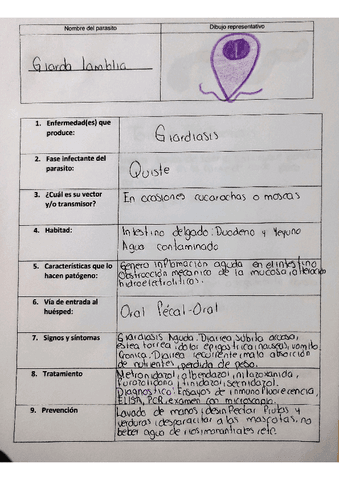 Nombre del parasito
Dibujo representativo
Giarda lamblia
1. Enfermedad(es) que produce:
Giardiasis
2. Fase infectante del parasito:
Quiste
3. ¿Cuál es su vector y/o transmisor?
En ocasiones cucarachas o moscas
4. Habitad:
Intestino delgado: Duodeno y Yeyuno
Agua contaminado
5. Características que lo hacen patógeno:
Genera inflamación aguda en el intestino
Obstrucción mecanica de la mucosa, alteración
hidroelectroliticas.
6. Vía de entrada al huésped:
Oral Fécal-Oral
7. Signos y síntomas
Giardiasis Aguda: Diarrea subita acuosa,
esteatorrea, dolor epigastrico, nauseas, vomito.
Cronica: Diarrea recurrente, mala absorción
de nutrientes, perdida de peso.
8. Tratamiento
Metronidazol, albendazol, nitazoxanida,
furazolidona, tinidazol, secnidazol.
Diagnostico: Ensayos de inmunofluorecencia,
ELISA, PCR, examen con microscopio.
9. Prevención
Lavado de manos, desinfectar frutas y
verduras, desparacitar a las mascotas, no
beber agua de rios, manantiales, etc.